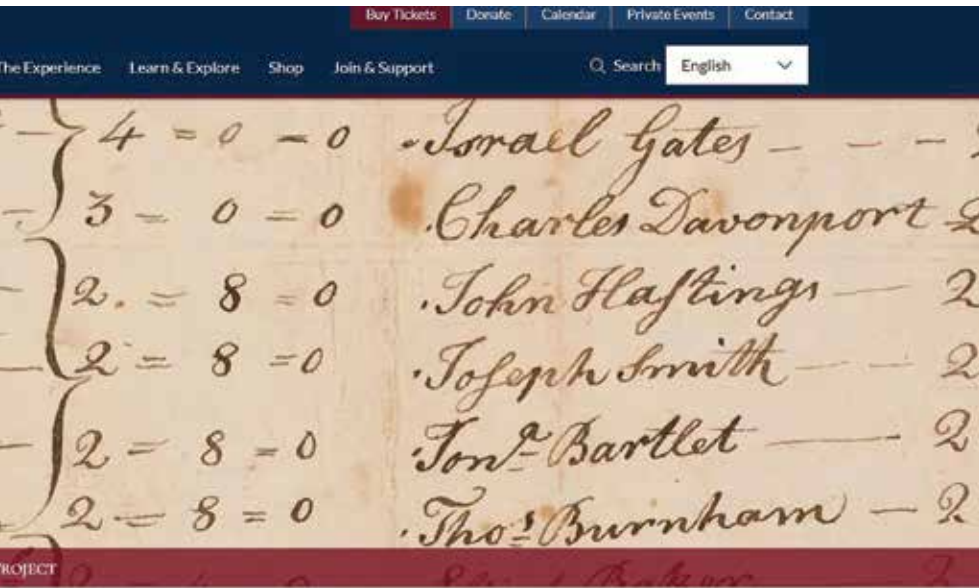 Buy Tickets Donate Calendar Private Events Contact
The Experience Learn & Explore Shop Join & Support Search English
4 = 0 = 0 Israel Gates — — —
3 = 0 = 0 Charles Davonport 2
2. = 8 = 0 John Haſtings — 2
2 = 8 = 0 Joſeph Smith — — 2
2 = 8 = 0 Jonᵃ Bartlet — 2
2 = 8 = 0 Thoˢ Burnham — 2
PROJECT